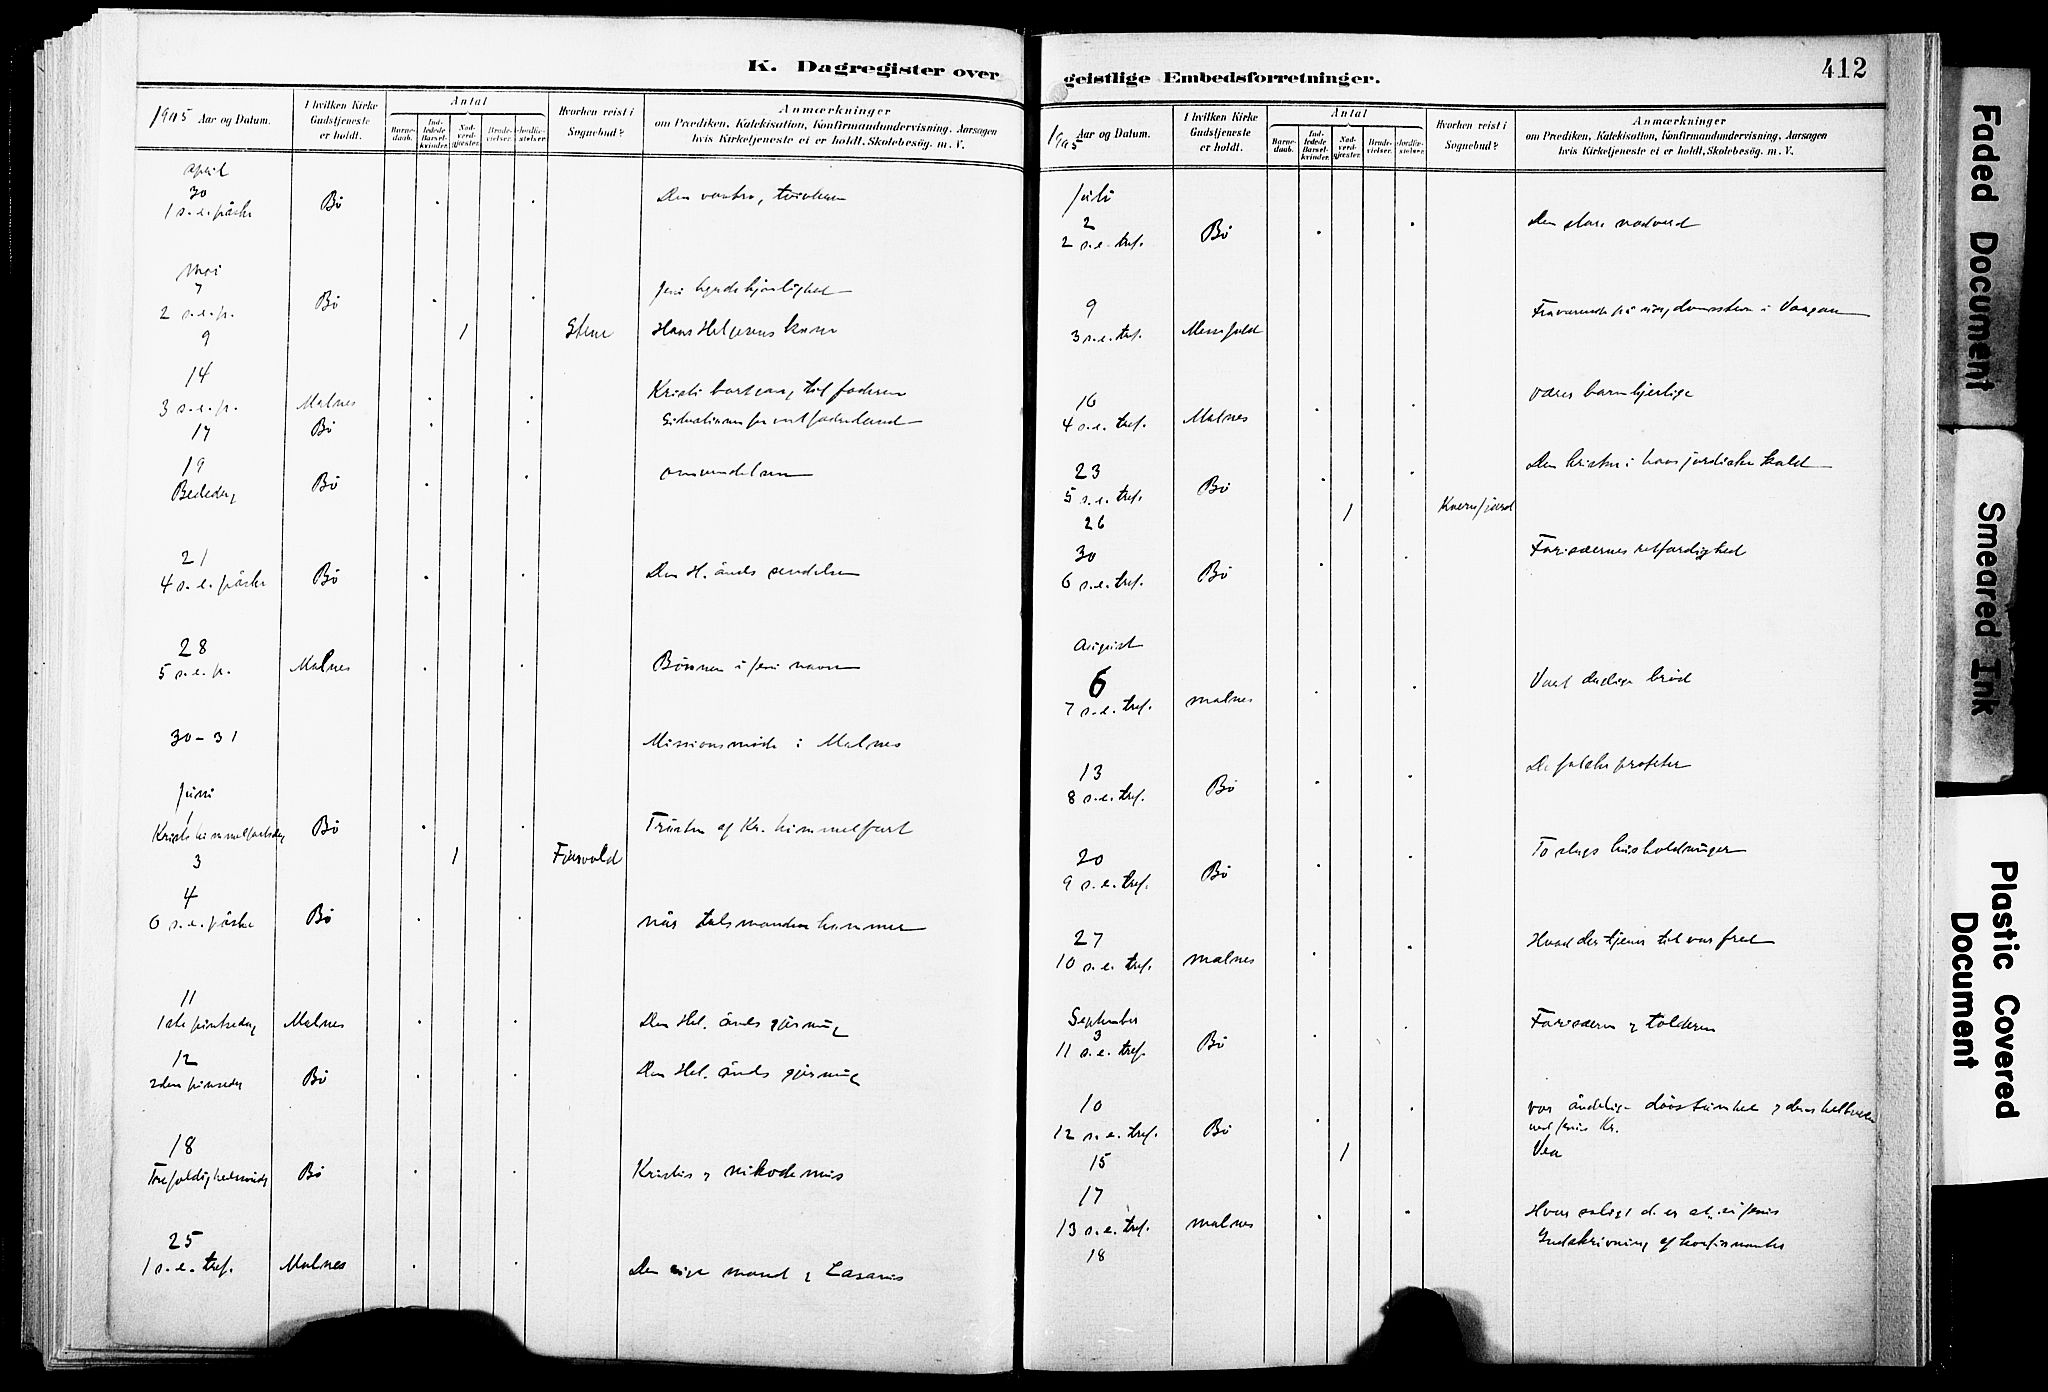 K. Dagregister over
1905 Aar og Datum.
I hvilken Kirke Gudstjeneste er holdt.
Antal
Barne-daab.
Ind-ledede Barsel-kvinder.
Nad-verd-gjester.
Brude-vielser.
Jordfæ-stelser.
Hvorhen reist i Sognebud?
Anmærkninger
om Prædiken, Katekisation, Konfirmandundervisning, Aarsagen
hvis Kirketjeneste ei er holdt, Skolebesøg. m. V.
April
30
1 s.e. påske Bø Den vantro, tvivleren
Mai
7
2 s.e.p. Bø Jesu hyrdekjærlighed
9 1 Stene Hans Helgesens kone
14
3 s.e.p. Malnes Kristi bortgang til faderen
17 Bø
19
Bededag Bø omvendelsen
21
4 s.e. påske Bø Den H. ånds sendelse
28
5 s.e.p. Malnes Bønnen i Jesu navn
30-31 Missionsmøde i Malnes
Juni
1
Kristi himmelfartsdag Bø Trøsten af Kr. himmelfart
3 1
4
6 s.e. påske Bø når talsmanden kommer
11
1ste pintsedag Malnes Den Hel. ånds gjerning
12
2den pinsedag Bø Den Hel. ånds gjerning
18
Trefoldighedssøndg Bø Kristus & Nikodemus
25
1 s.e. tref. Malnes Den rige mand & Lazarus
geistlige Embedsforretninger.
412
1905 Aar og Datum.
I hvilken Kirke Gudstjeneste er holdt.
Antal
Barne-daab.
Ind-ledede Barsel-kvinder.
Nad-verd-gjester.
Brude-vielser.
Jordfæ-stelser.
Hvorhen reist i Sognebud?
Anmærkninger
om Prædiken, Katekisation, Konfirmandundervisning, Aarsagen
hvis Kirketjeneste ei er holdt, Skolebesøg. m. V.
Juli
2
2 s.e. tref. Bø Den store nadverd
9
3 s.e. tref. Fraværende på ungdomsstevne i Vaagan
16
4 s.e. tref. Malnes værer barmhjertige
23
5 s.e. tref. Bø Den kristne i hans jordiske kald
26 1
30
6 s.e. tref. Bø Farisæernes retfærdighed
August
6
7 s.e. tref. malnes Vort daglige brød
13
8 s.e. tref. Bø De falske profeter
20
9 s.e. tref. Bø To slags husholdninger
27
10 s.e. tref. malnes Hvad der tjener til vor fred
September
3
11 s.e. tref. Bø Farisæeren & tolderen
10
12 s.e. tref. Bø vor åndelige døvstumhet & dens helbredelse
ved Jesus Kr.
15 1 Vea
17
13 s.e. tref. malnes Hvor saligt d. er at
18 Indskrivning af konfirmanter
Faded Document
Smeared Ink
Plastic Covered
Document